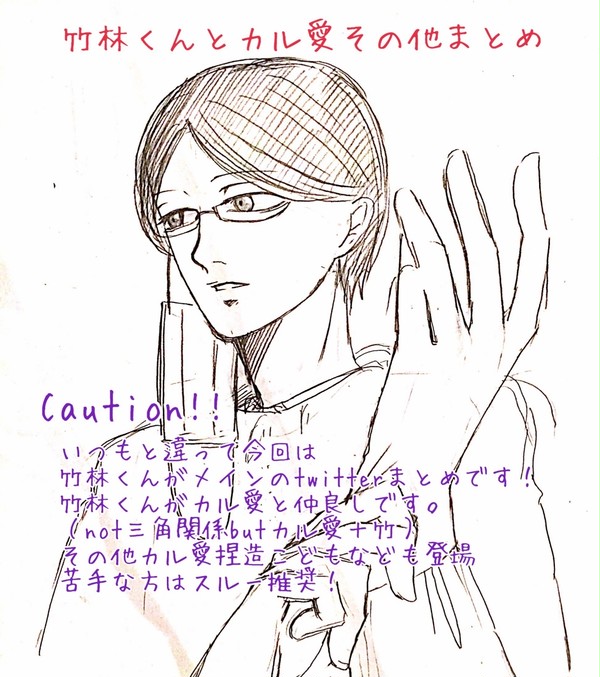 竹林くんとカル愛その他まとめ
Caution!!
いつもと違って今回は
竹林くんがメインのtwitterまとめです!
竹林くんがカル愛と仲良しです。
(not三角関係butカル愛+竹)
その他カル愛捏造こどもなども登場
苦手な方はスルー推奨!